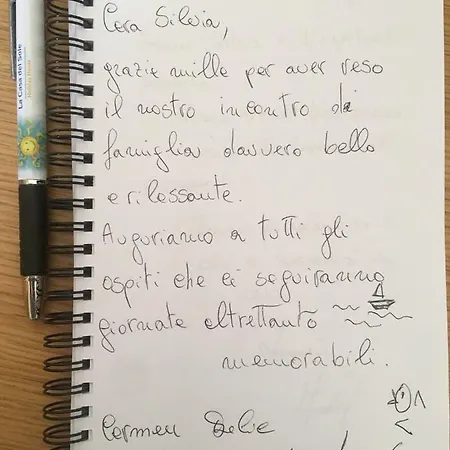 La Casa del Sole
Cara Silvia,
grazie mille per aver reso
il nostro incontro di
famiglia davvero bello
e rilassante.
Auguriamo a tutti gli
ospiti che ci seguiranno
giornate altrettanto
memorabili.
Carmen